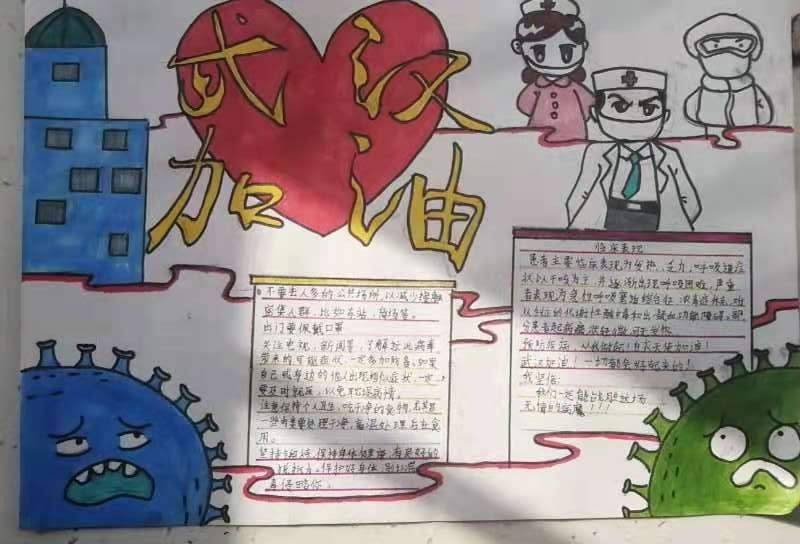 武汉
加油
不要去人多的公共场所,以减少接触
密集人群,比如车站,商场等。
出门要佩戴口罩
关注电视,新闻等,了解拉近病毒
带来的可能症状,一定参加防备。如果
自己或身边的他人出现相似症状一定
要及时就医,以免耽误病情。
注意保持个人卫生,吃干净的食物,尤其是
一些肉类要处理干净,高温处理后在食
用。
坚持锻炼,保持身体健康,有足够的
抵抗力。保护好身体,别让病
毒侵略你。
临床表现
患者主要临床表现为发热、乏力,呼吸道症
状以干咳为主,并逐渐出现呼吸困难,严重
者表现为急性呼吸窘迫综合征、浓毒症休克、难
以纠正的代谢性酸中毒和出凝血功能障碍。部
分患者起病症状轻微,可无发热。
预防疾病,从我做起!白衣天使加油!
武汉加油!一切都会好起来的!
我坚信:
我们一定能战胜这场
无情的病魔!!!